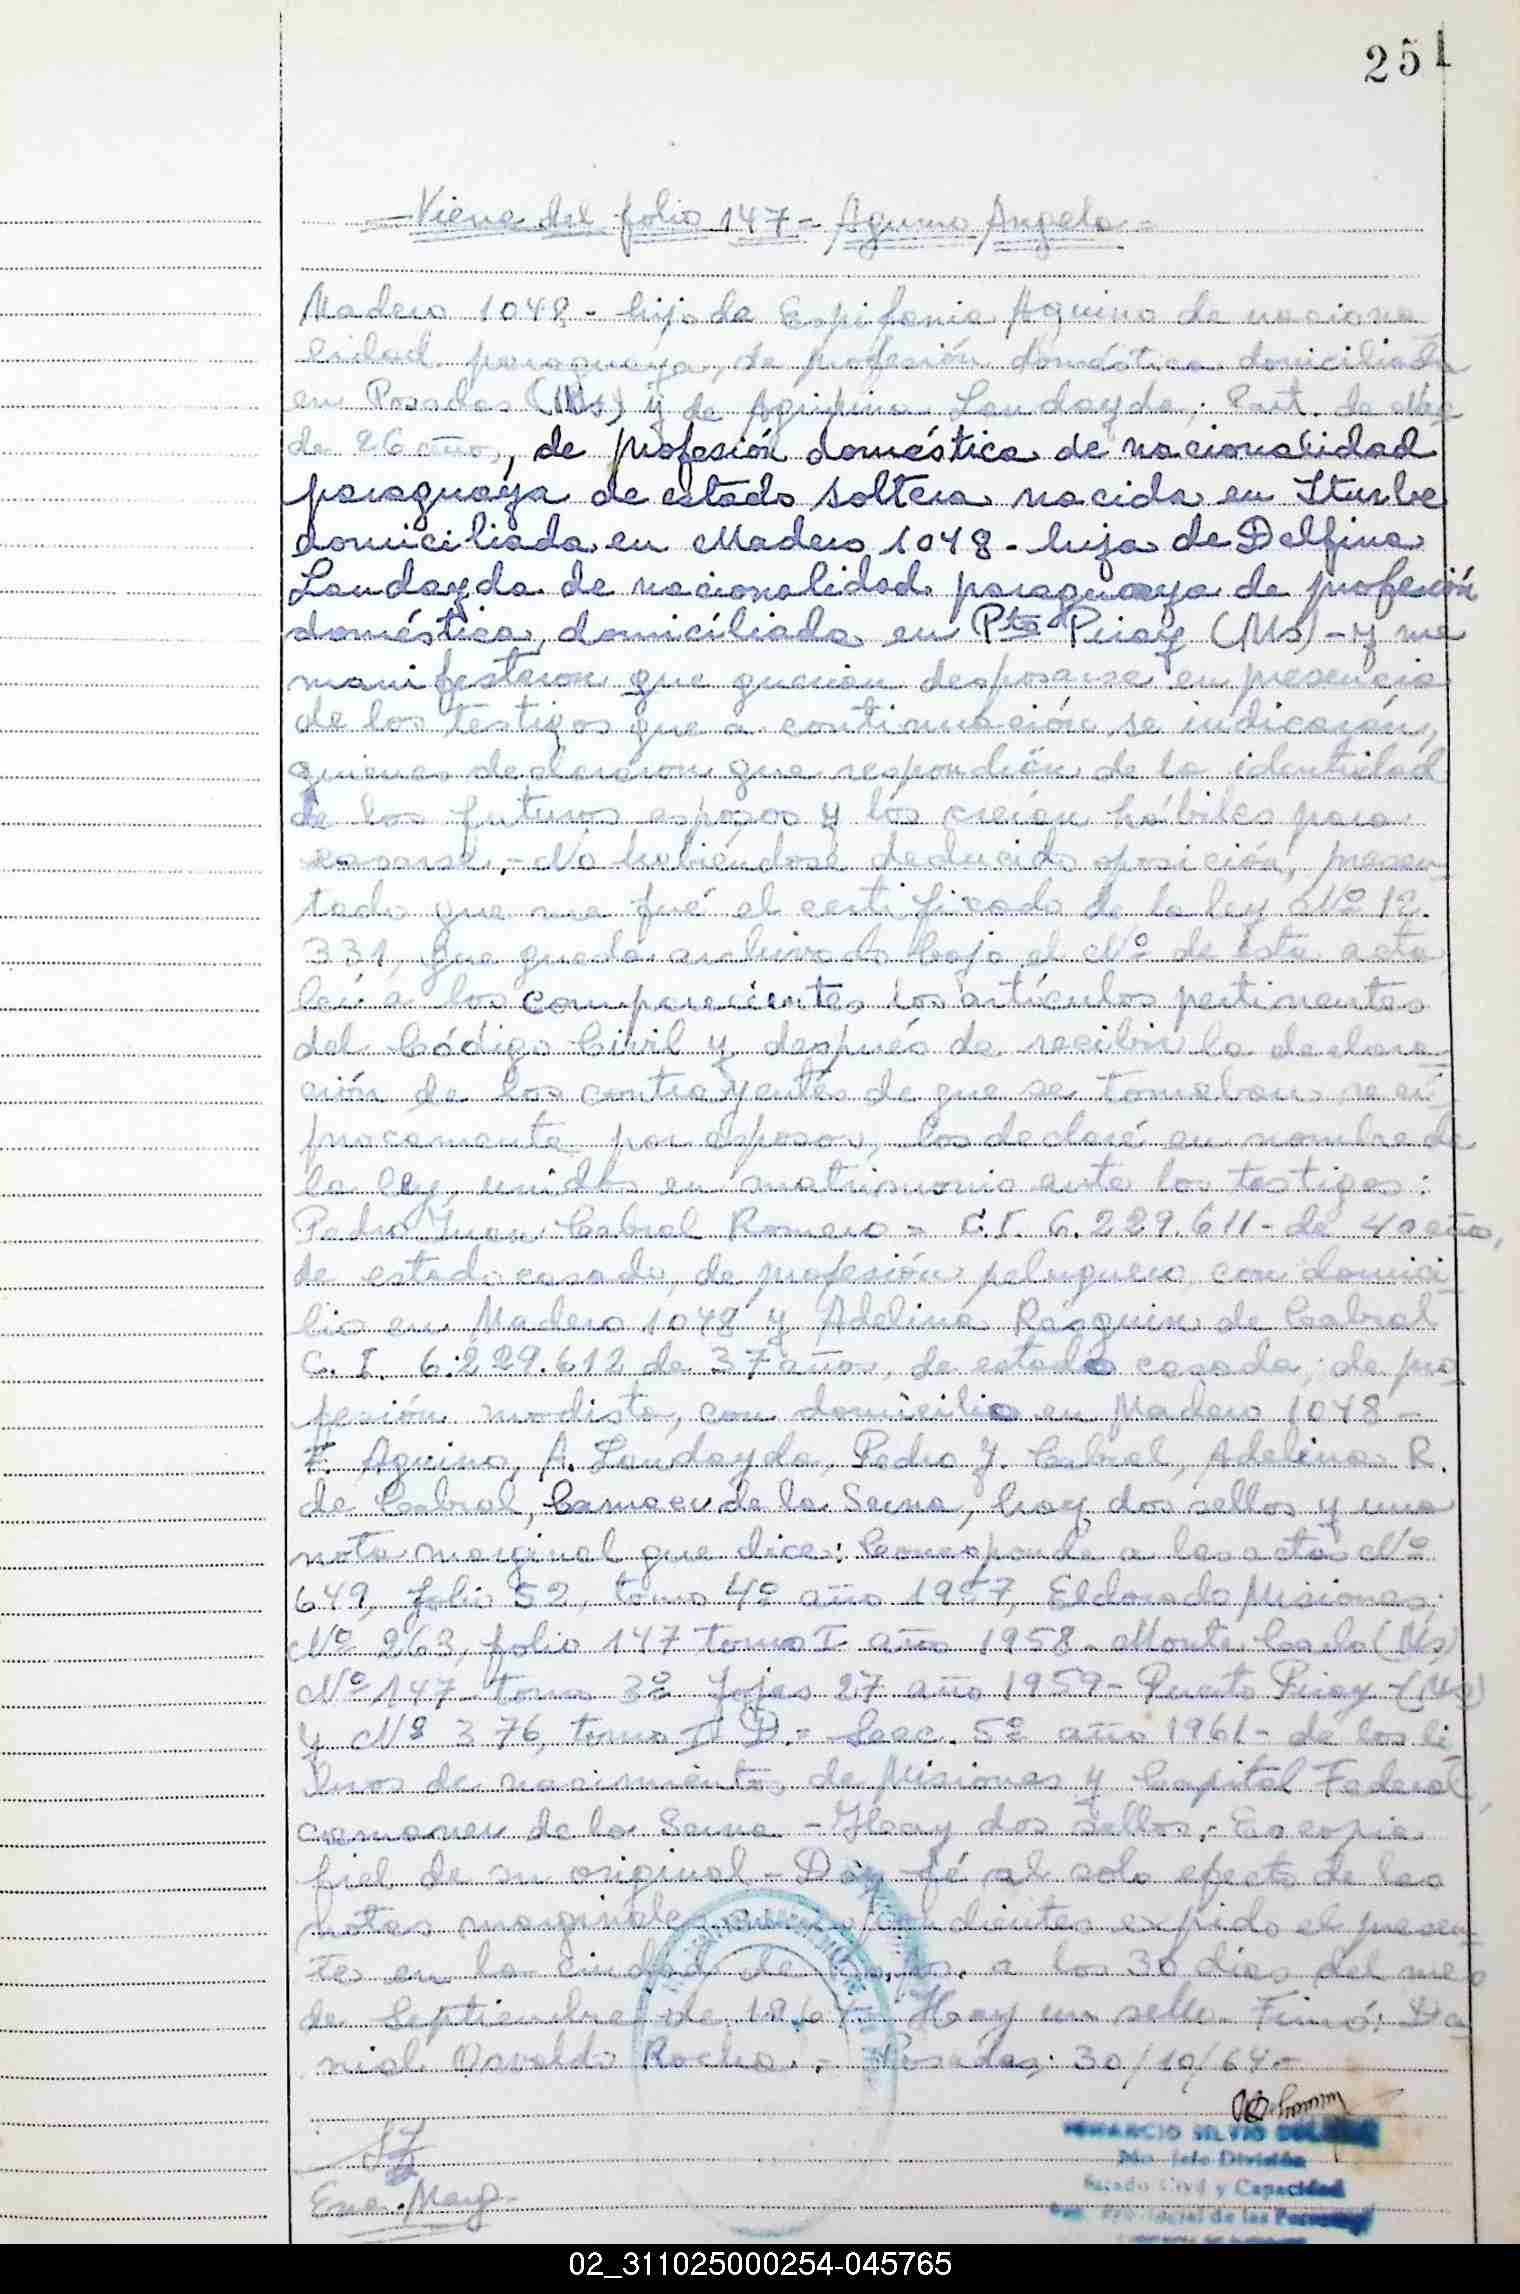 251
Viene del folio 147 - Aquino Angela -
Madero 1048 - hijo de Epifania Aquino de naciona
lidad paraguaya, de profesión doméstica domiciliada
en Posadas (Ms) y de Agripina Landayda, Part. de Nac
de 26 años, de profesión doméstica de nacionalidad
paraguaya de estado soltera nacida en Iturbe
domiciliada en Madero 1048 - hija de Delfina
Landayda de nacionalidad paraguaya de profesión
doméstica, domiciliada en Pto Piray (Ms) - y me
manifestaron que querían desposarse en presencia
de los testigos que a continuación se indicarán,
quienes declararon que respondían de la identidad
de los futuros esposos y los creían hábiles para
casarse. - No habiéndose deducido oposición, presen
tado que me fué el certificado de la ley Nº 12.
331, que queda archivado bajo el Nº de esta acta
leí a los comparecientes los artículos pertinentes
del Código Civil y después de recibir la declara-
ción de los contrayentes de que se tomaban recí
procamente por esposos, los declaré en nombre de
la ley, unidos en matrimonio ante los testigos:
Pedro Juan Cabral Romero - C.I. 6.229.611 - de 40 años,
de estado casado, de profesión peluquero, con domici
lio en Madero 1048 y Adelina de Cabral
C. I. 6.229.612 de 37 años, de estado casada, de pro
fesión modista, con domicilio en Madero 1048 -
F. Aquino, A. Landayda, Pedro J. Cabral, Adelina R.
de Cabral, de la Serna, hay dos sellos y una
nota marginal que dice: Corresponde a las actas Nº
649, folio 52, tomo 4º año 1957, Eldorado Misiones;
Nº 263, folio 147 tomo I año 1958 - Monte Carlo (Ms)
Nº 147 tomo 3º fojas 27 año 1959 - Puerto Piray - (Ms)
y Nº 376, tomo I D. - Secc. 5º año 1961 - de los li
bros de nacimientos de Misiones y Capital Federal,
de la Serna - Hay dos sellos. - Es copia
fiel de su original - Doy fé al solo efecto de las
notas marginales correspondientes expido el presen
te en la ciudad de Bs. As. a los 30 dias del mes
de Septiembre de 1964 - Hay un sello. Firmó: Da
niel Osvaldo Rocha. - Posadas, 30/10/64 -
VENANCIO SILVIO
2do. Jefe División
Estado Civil y Capacidad
Provincial de las Personas
02_311025000254-045765